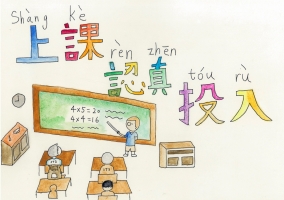 Shàng kè
上課
rèn zhēn
認真
tóu rù
投入
4×5=20
4×4=16